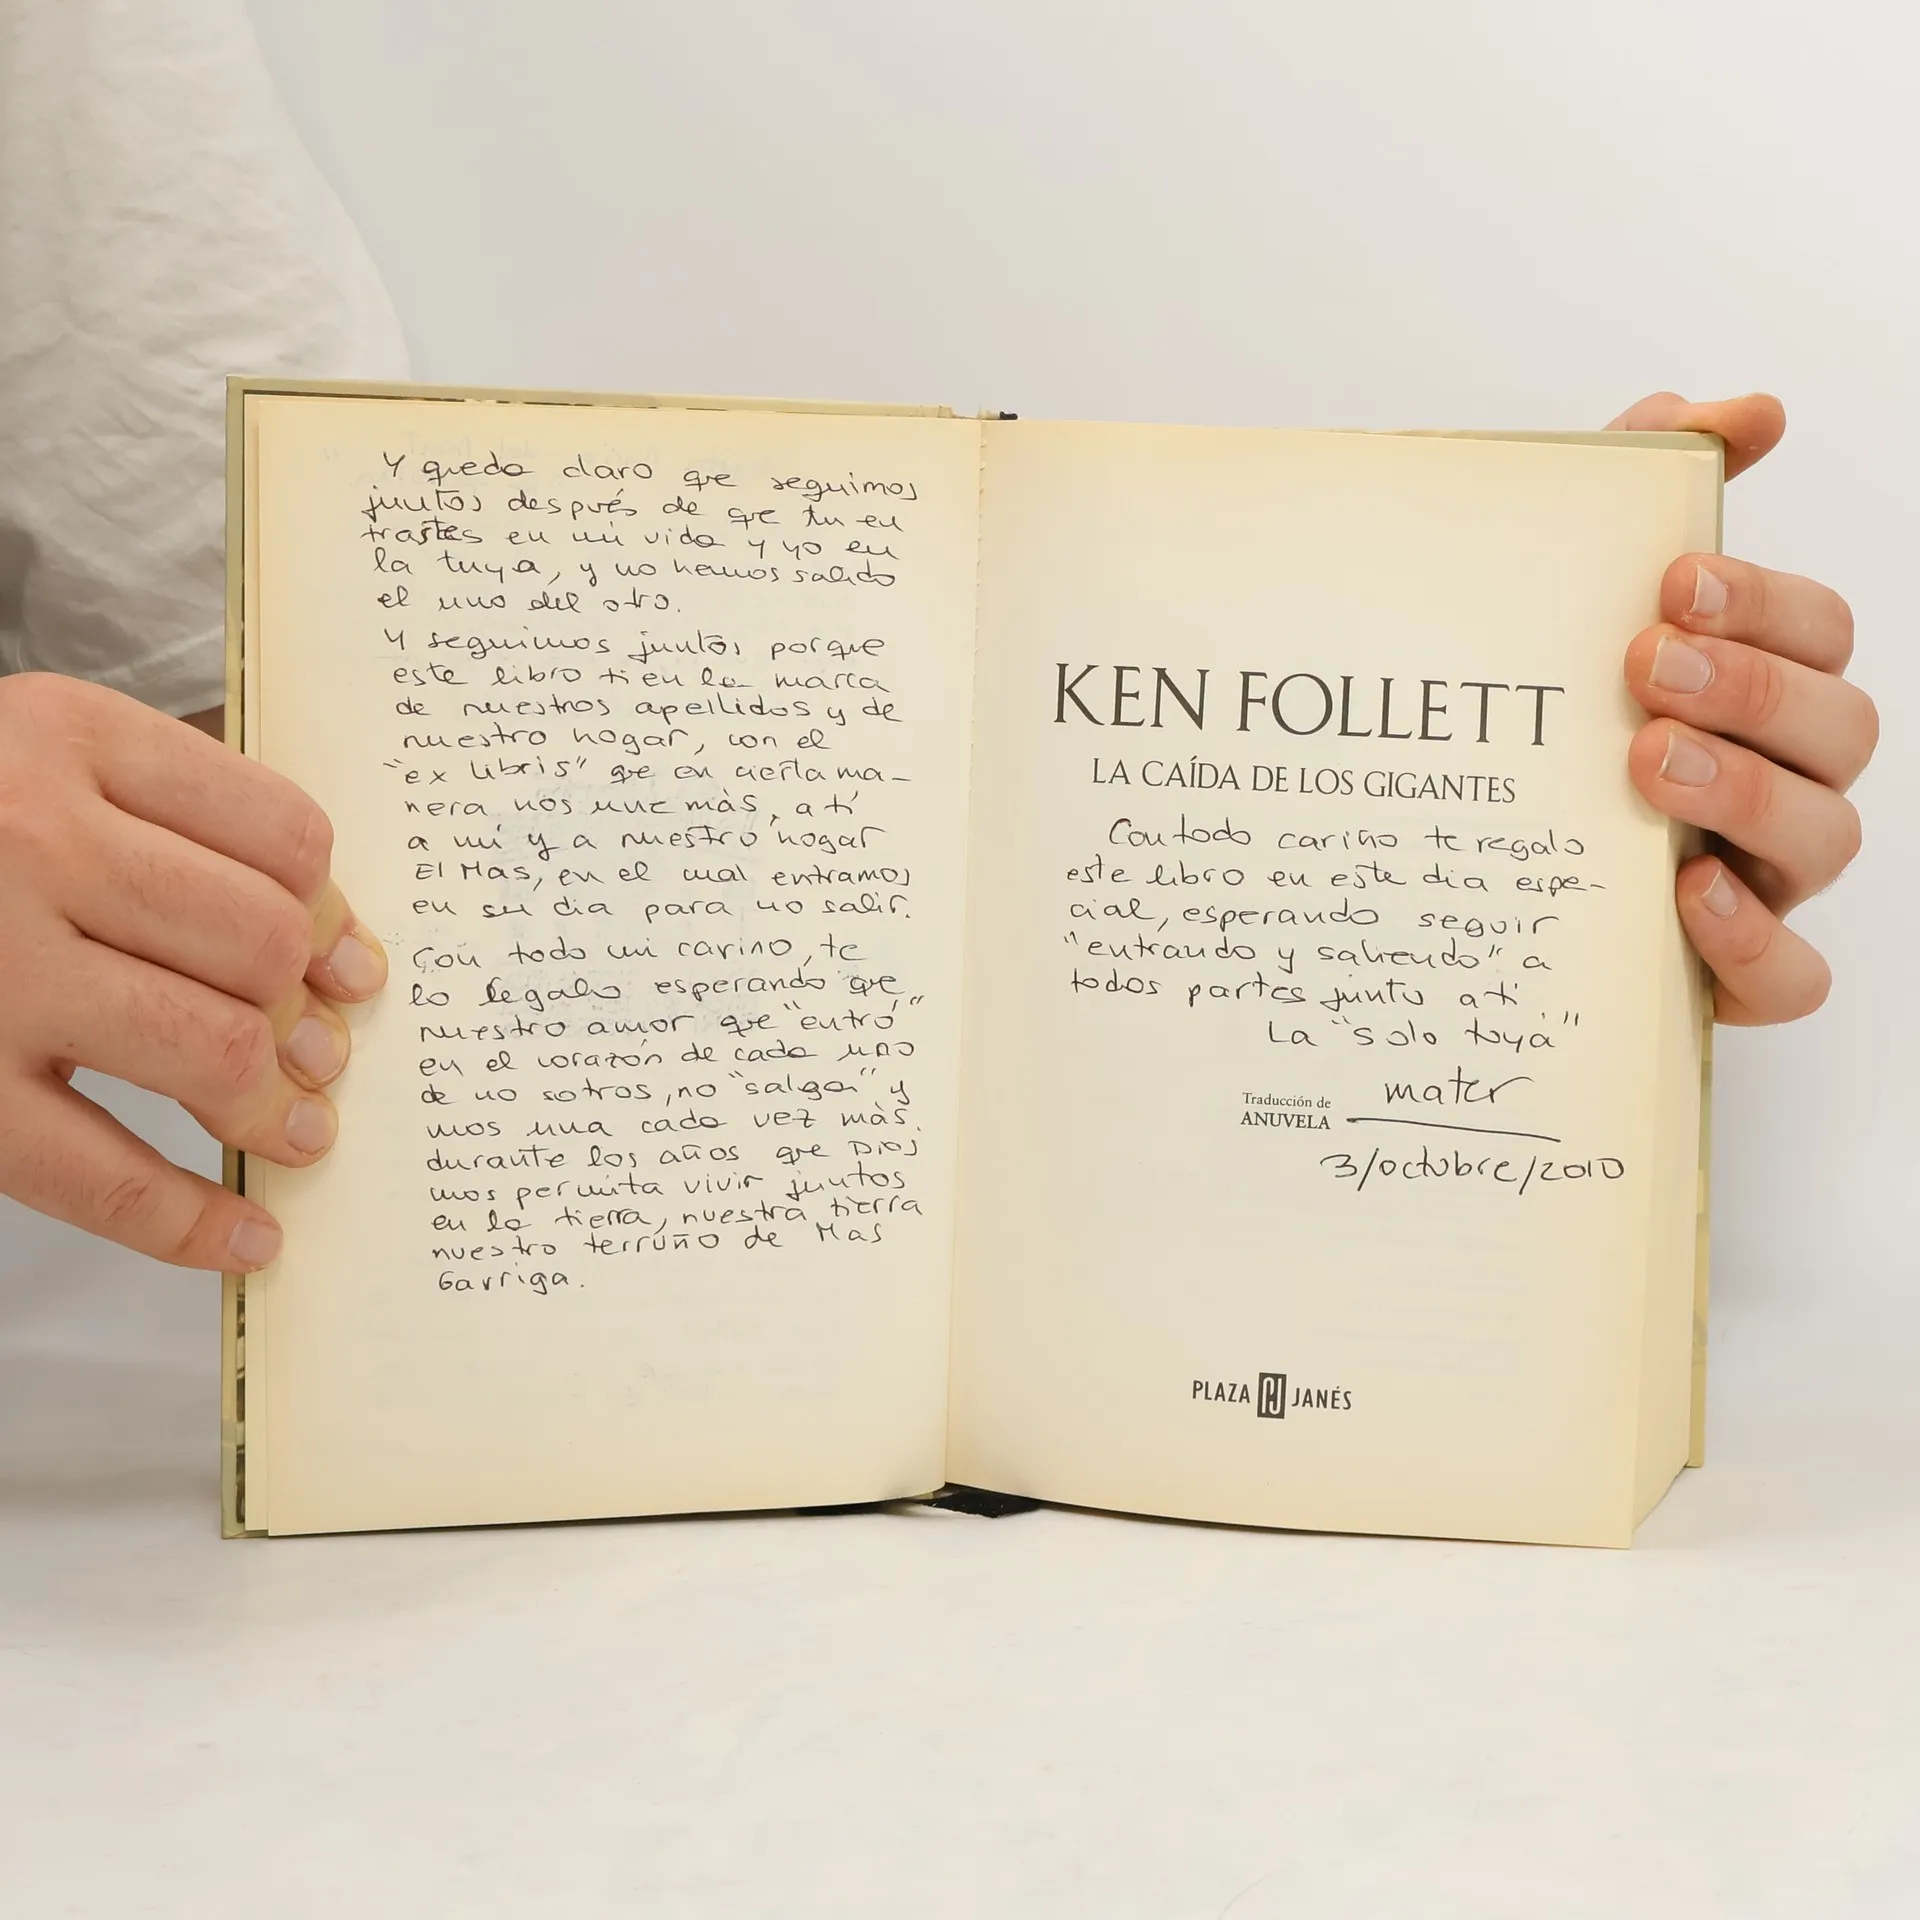 Y queda claro que seguimos
juntos después de que tu en
trastes en mi vida y yo en
la tuya, y no hemos salido
el uno del otro.
Y seguimos juntos porque
este libro tien la marca
de nuestros apellidos y de
nuestro hogar, con el
"ex libris" que en cierta ma-
nera nos une màs, a tí
a mí y a nuestro hogar
El Mas, en el cual entramos
en su dia para no salir.
Con todo mi cariño, te
lo regalo esperando que
nuestro amor que "entró"
en el corazón de cada uno
de no sotros, no "salga" y
nos una cada vez màs.
durante los años que Dios
nos permita vivir juntos
en la tierra, nuestra tierra
nuestro terruño de Mas
Garriga.
KEN FOLLETT
LA CAÍDA DE LOS GIGANTES
Con todo cariño te regalo
este libro en este dia espe-
cial, esperando seguir
"entrando y saliendo" a
todos partes junto a ti
La "solo tuya"
mater
Traducción de
ANUVELA
3/octubre/2010
PLAZA JANÉS